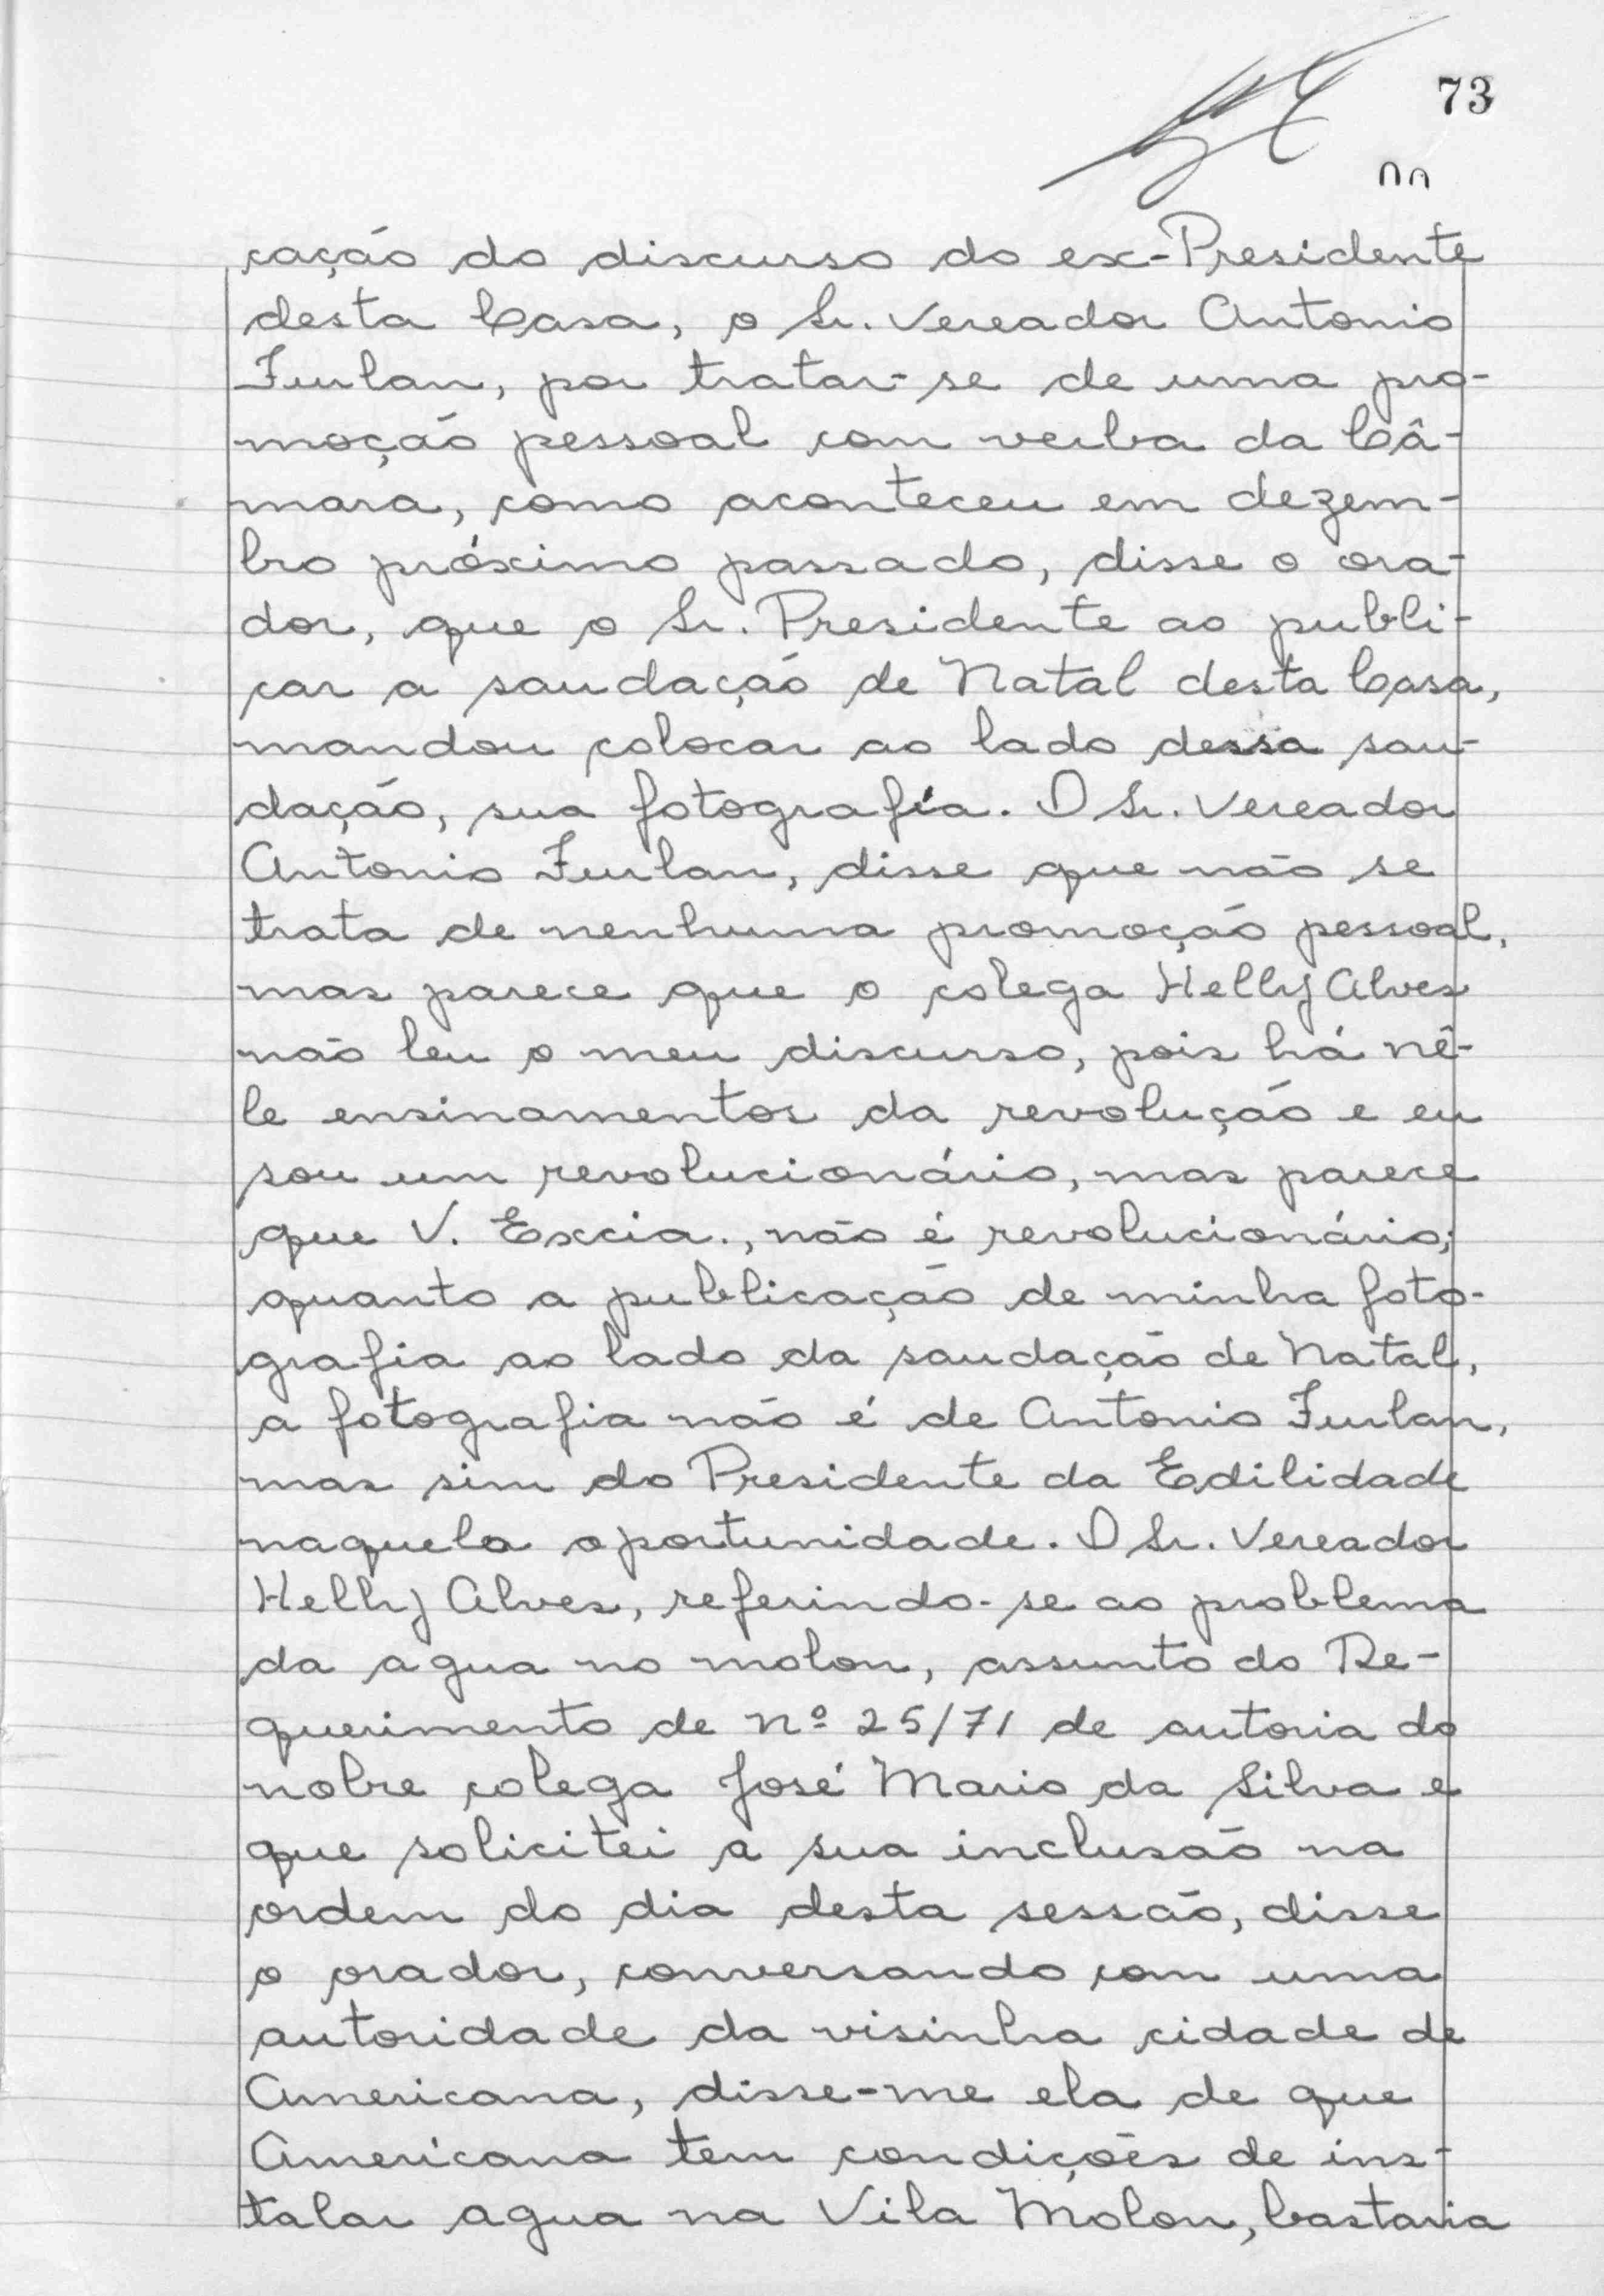 73
cação do discurso do ex-Presidente
desta Casa, o Sr. Vereador Antonio
Furlan, por tratar-se de uma pro-
moção pessoal com verba da Câ-
mara, como aconteceu em dezem-
bro próximo passado, disse o ora-
dor, que o Sr. Presidente ao publi-
car a saudação de Natal desta Casa,
mandou colocar ao lado dessa sau-
dação, sua fotografia. O Sr. Vereador
Antonio Furlan, disse que não se
trata de nenhuma promoção pessoal,
mas parece que o colega Helly Alves
não leu o meu discurso, pois há nê-
le ensinamentos da revolução e eu
sou um revolucionário, mas parece
que V. Excia., não é revolucionário;
quanto a publicação de minha foto-
grafia ao lado da saudação de Natal,
a fotografia não é de Antonio Furlan,
mas sim do Presidente da Edilidade
naquela oportunidade. O Sr. Vereador
Helly Alves, referindo-se ao problema
da agua no molon, assunto do Re-
querimento de nº 25/71 de autoria do
nobre colega José Maria da Silva e
que solicitei a sua inclusão na
ordem do dia desta sessão, disse
o orador, conversando com uma
autoridade da visinha cidade de
Americana, disse-me ela de que
Americana tem condições de ins-
talar agua na Vila Molon, bastaria